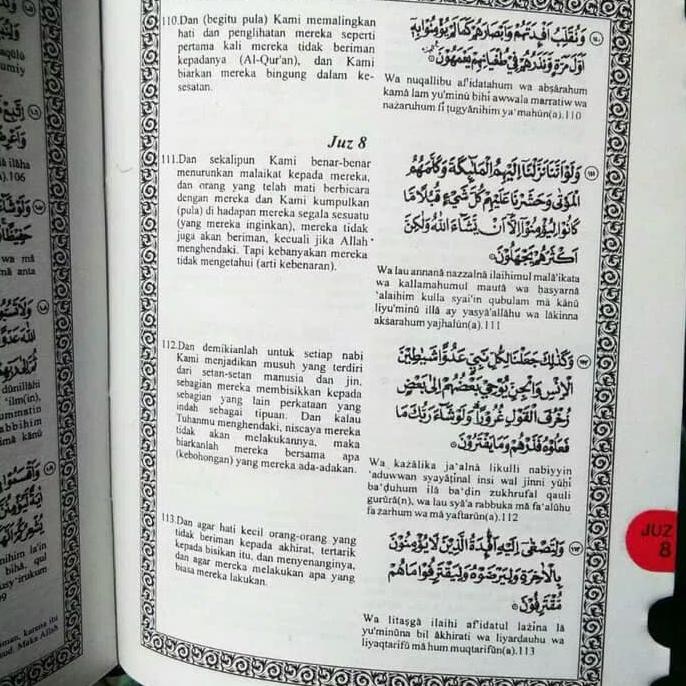 110.Dan (begitu pula) Kami memalingkan
hati dan penglihatan mereka seperti
pertama kali mereka tidak beriman
kepadanya (Al-Qur'an), dan Kami
biarkan mereka bingung dalam ke-
sesatan.
وَنُقَلِّبُ أَفْـِٕدَتَهُمْ وَأَبْصَارَهُمْ كَمَا لَمْ يُؤْمِنُوا بِهِ
أَوَّلَ مَرَّةٍ وَنَذَرُهُمْ فِي طُغْيَانِهِمْ يَعْمَهُونَ
Wa nuqallibu af'idatahum wa abṣārahum
kamā lam yu'minū bihī awwala marratiw wa
nażaruhum fī ṭugyānihim ya'mahūn(a).110
Juz 8
111.Dan sekalipun Kami benar-benar
menurunkan malaikat kepada mereka,
dan orang yang telah mati berbicara
dengan mereka dan Kami kumpulkan
(pula) di hadapan mereka segala sesuatu
(yang mereka inginkan), mereka tidak
juga akan beriman, kecuali jika Allah
menghendaki. Tapi kebanyakan mereka
tidak mengetahui (arti kebenaran).
وَلَوْ أَنَّنَا نَزَّلْنَا إِلَيْهِمُ الْمَلَٰٓئِكَةَ وَكَلَّمَهُمُ
الْمَوْتَىٰ وَحَشَرْنَا عَلَيْهِمْ كُلَّ شَيْءٍ قُبُلًا مَا
كَانُوا لِيُؤْمِنُوا إِلَّا أَنْ يَشَاءَ اللَّهُ وَلَٰكِنَّ
أَكْثَرَهُمْ يَجْهَلُونَ
Wa lau annanā nazzalnā ilaihimul malā'ikata
wa kallamahumul mautā wa ḥasyarnā
'alaihim kulla syai'in qubulam mā kānū
liyu'minū illā ay yasyā'allāhu wa lākinna
akṡarahum yajhalūn(a).111
112.Dan demikianlah untuk setiap nabi
Kami menjadikan musuh yang terdiri
dari setan-setan manusia dan jin,
sebagian mereka membisikkan kepada
sebagian yang lain perkataan yang
indah sebagai tipuan. Dan kalau
Tuhanmu menghendaki, niscaya mereka
tidak akan melakukannya, maka
biarkanlah mereka bersama apa
(kebohongan) yang mereka ada-adakan.
وَكَذَٰلِكَ جَعَلْنَا لِكُلِّ نَبِيٍّ عَدُوًّا شَيَٰطِينَ
الْإِنْسِ وَالْجِنِّ يُوحِي بَعْضُهُمْ إِلَىٰ بَعْضٍ
زُخْرُفَ الْقَوْلِ غُرُورًا وَلَوْ شَاءَ رَبُّكَ مَا
فَعَلُوهُ فَذَرْهُمْ وَمَا يَفْتَرُونَ
Wa każālika ja'alnā likulli nabiyyin
'aduwwan syayāṭīnal insi wal jinni yūḥī
ba'ḍuhum ilā ba'ḍin zukhrufal qauli
gurūrā(n), wa lau syā'a rabbuka mā fa'alūhu
fa żarhum wa mā yaftarūn(a).112
113.Dan agar hati kecil orang-orang yang
tidak beriman kepada akhirat, tertarik
kepada bisikan itu, dan menyenanginya,
dan agar mereka melakukan apa yang
biasa mereka lakukan.
وَلِتَصْغَىٰ إِلَيْهِ أَفْـِٕدَةُ الَّذِينَ لَا يُؤْمِنُونَ
بِالْآخِرَةِ وَلِيَرْضَوْهُ وَلِيَقْتَرِفُوا مَا هُمْ
مُقْتَرِفُونَ
Wa litaṣgā ilaihi af'idatul lażīna lā
yu'minūna bil ākhirati wa liyarḍauhu wa
liyaqtarifū mā hum muqtarifūn(a).113
JUZ
8